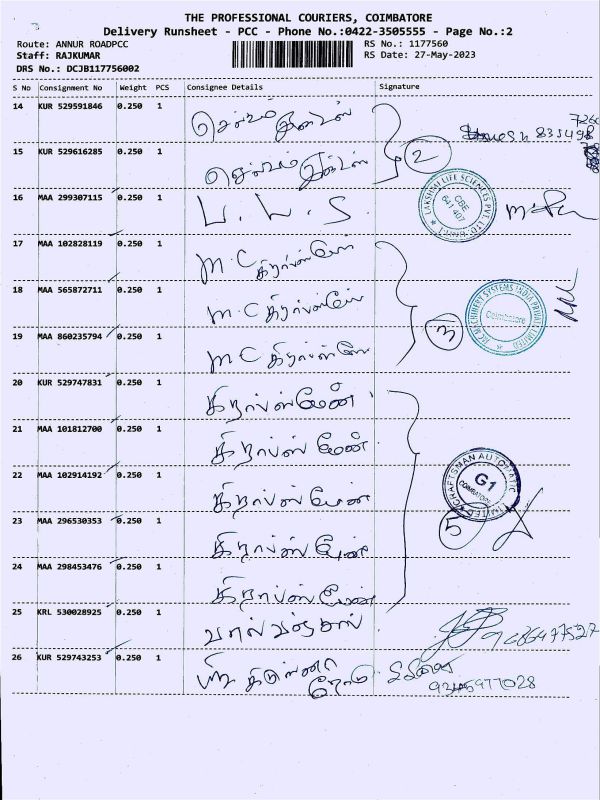 THE PROFESSIONAL COURIERS, COIMBATORE
Delivery Runsheet - PCC - Phone No.:0422-3505555 - Page No.:2
Route: ANNUR ROADPCC
RS No.: 1177560
Staff: RAJKUMAR
RS Date: 27-May-2023
DRS No.: DCJB117756002
S No Consignment No Weight PCS Consignee Details Signature
14 KUR 529591846 0.250 1
15 KUR 529616285 0.250 1
2
16 MAA 299307115 0.250 1 L. L. S.
LAKSHMI LIFE SCIENCES PVT. LTD.
CBE
641 407
17 MAA 102828119 0.250 1 M.C கிராப்ஸ்மேன்
18 MAA 565872711 0.250 1 M.C கிராப்ஸ்மேன்
MC MACHINERY SYSTEMS INDIA PRIVATE LIMITED
Coimbatore
3
19 MAA 860235794 0.250 1 M C கிராப்ஸ்மேன்
20 KUR 529747831 0.250 1 கிராப்ஸ்மேன்
21 MAA 101812700 0.250 1 கிராப்ஸ்மேன்
22 MAA 102914192 0.250 1 கிராப்ஸ்மேன்
CRAFTSMAN AUTOMATION LIMITED
G1
COIMBATORE
5
23 MAA 296530353 0.250 1 கிராப்ஸ்மேன்
24 MAA 298453476 0.250 1 கிராப்ஸ்மேன்
25 KRL 530028925 0.250 1
26 KUR 529743253 0.250 1